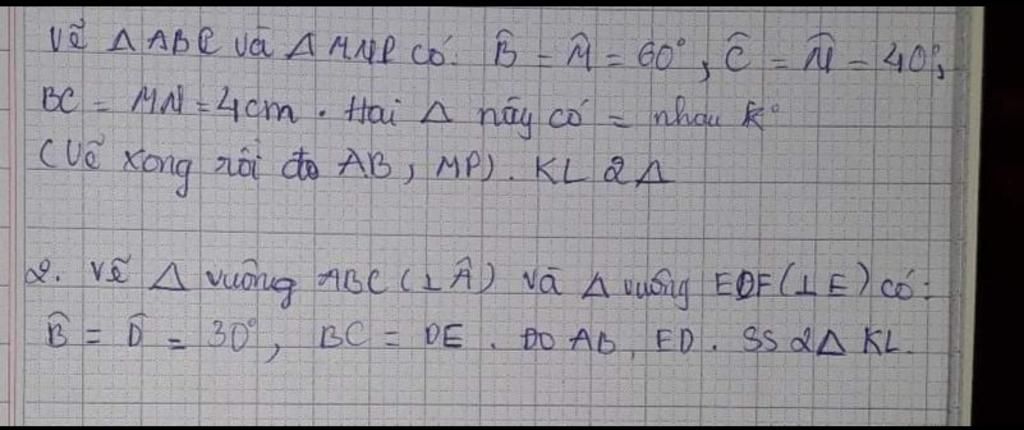 Vẽ Δ ABC và Δ MNP có: B̂ = M̂ = 60°, Ĉ = N̂ = 40°,
BC = MN = 4cm. Hai Δ này có = nhau k°
(Vẽ xong rồi đo AB, MP). KL 2Δ
2. Vẽ Δ vuông ABC (⊥ Â) và Δ vuông EDF (⊥ E) có:
B̂ = D̂ = 30°, BC = DE. ĐO AB, ED. SS 2Δ KL.